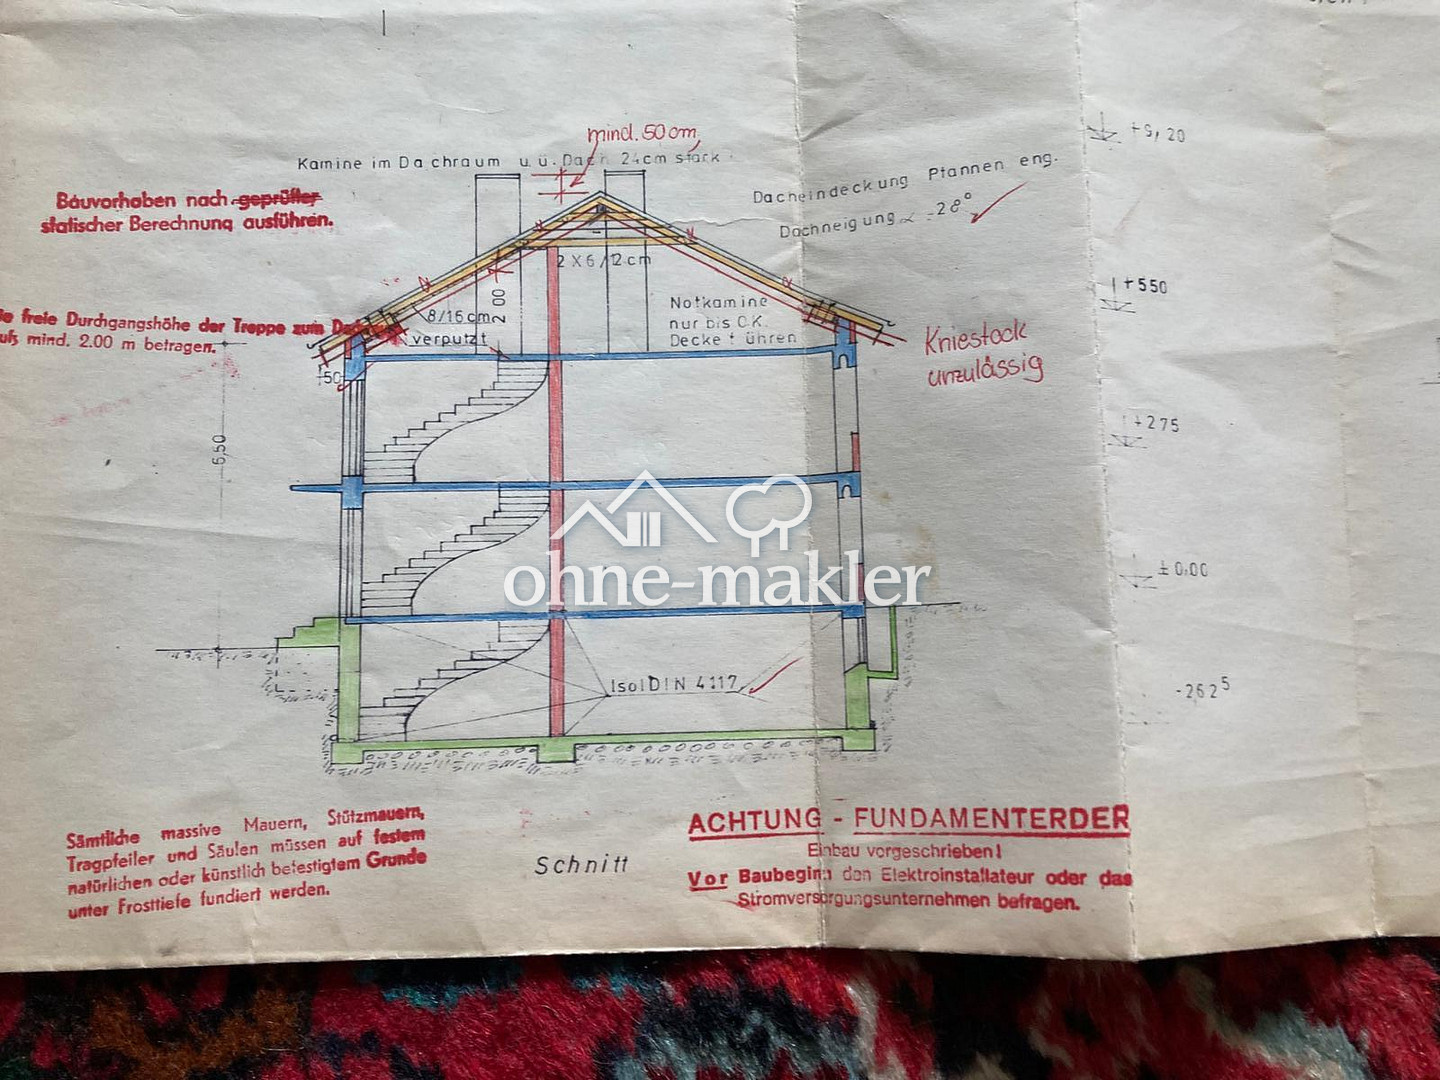 mind. 50 cm
Kamine im Dachraum u. ü. Dach 24cm stark.
+9,20
Dacheindeckung Pfannen eng.
Dachneigung ∠ = 28°
Bauvorhaben nach geprüfter
statischer Berechnung ausführen.
2 X 6/12cm
+550
Notkamine
nur bis O.K.
Decke führen
2,00
8/16 cm
verputzt
freie Durchgangshöhe der Treppe zum
mind. 2.00 m betragen.
Kniestock
unzulässig
50
+275
5,50
ohne-makler
± 0,00
Isol DIN 4117
-262⁵
Sämtliche massive Mauern, Stützmauern,
Tragpfeiler und Säulen müssen auf festem
natürlichen oder künstlich befestigtem Grunde
unter Frosttiefe fundiert werden.
Schnitt
ACHTUNG - FUNDAMENTERDER
Einbau vorgeschrieben!
Vor Baubeginn den Elektroinstallateur oder das
Stromversorgungsunternehmen befragen.